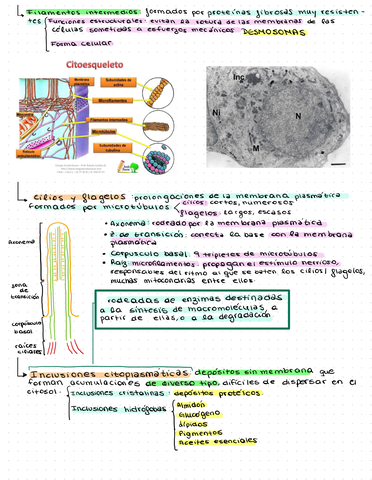 Filamentos intermedios: formados por proteínas fibrosas muy resisten-
tes
Funciones estructurales: evitan la rotura de las membranas de las
células sometidas a esfuerzos mecánicos DESMOSOMAS
Forma celular
Citoesqueleto
Membrana plasmática
Subunidades de actina
Microfilamentos
Filamentos intermedios
Microtúbulos
Subunidades de tubulina
Inc
Ni
N
M
cilios y flagelos: prolongaciones de la membrana plasmática
formados por microtúbulos
cilios: cortos, numerosos
flagelos: largos, escasos
Axonema: rodeado por la membrana plasmática
Z. de transición: conecta la base con la membrana
plasmática
Corpúsculo basal: 9 tripletes de microtúbulos
Raíz: microfilamentos: propagan el estímulo nervioso,
responsables del ritmo al que se baten los cilios/flagelos,
muchas mitocondrias entre ellos.
Axonema
zona de transición
corpúsculo basal
raíces ciliares
rodeadas de enzimas destinadas
a la síntesis de macromoléculas, a
partir de ellas, o a la degradación
Inclusiones citoplasmáticas: depósitos sin membrana que
forman acumulaciones de diverso tipo, difíciles de dispersar en el
citosol.
Inclusiones cristalinas: depósitos protéicos.
Inclusiones hidrófobas
Almidón
Glucógeno
Lípidos
Pigmentos
Aceites esenciales